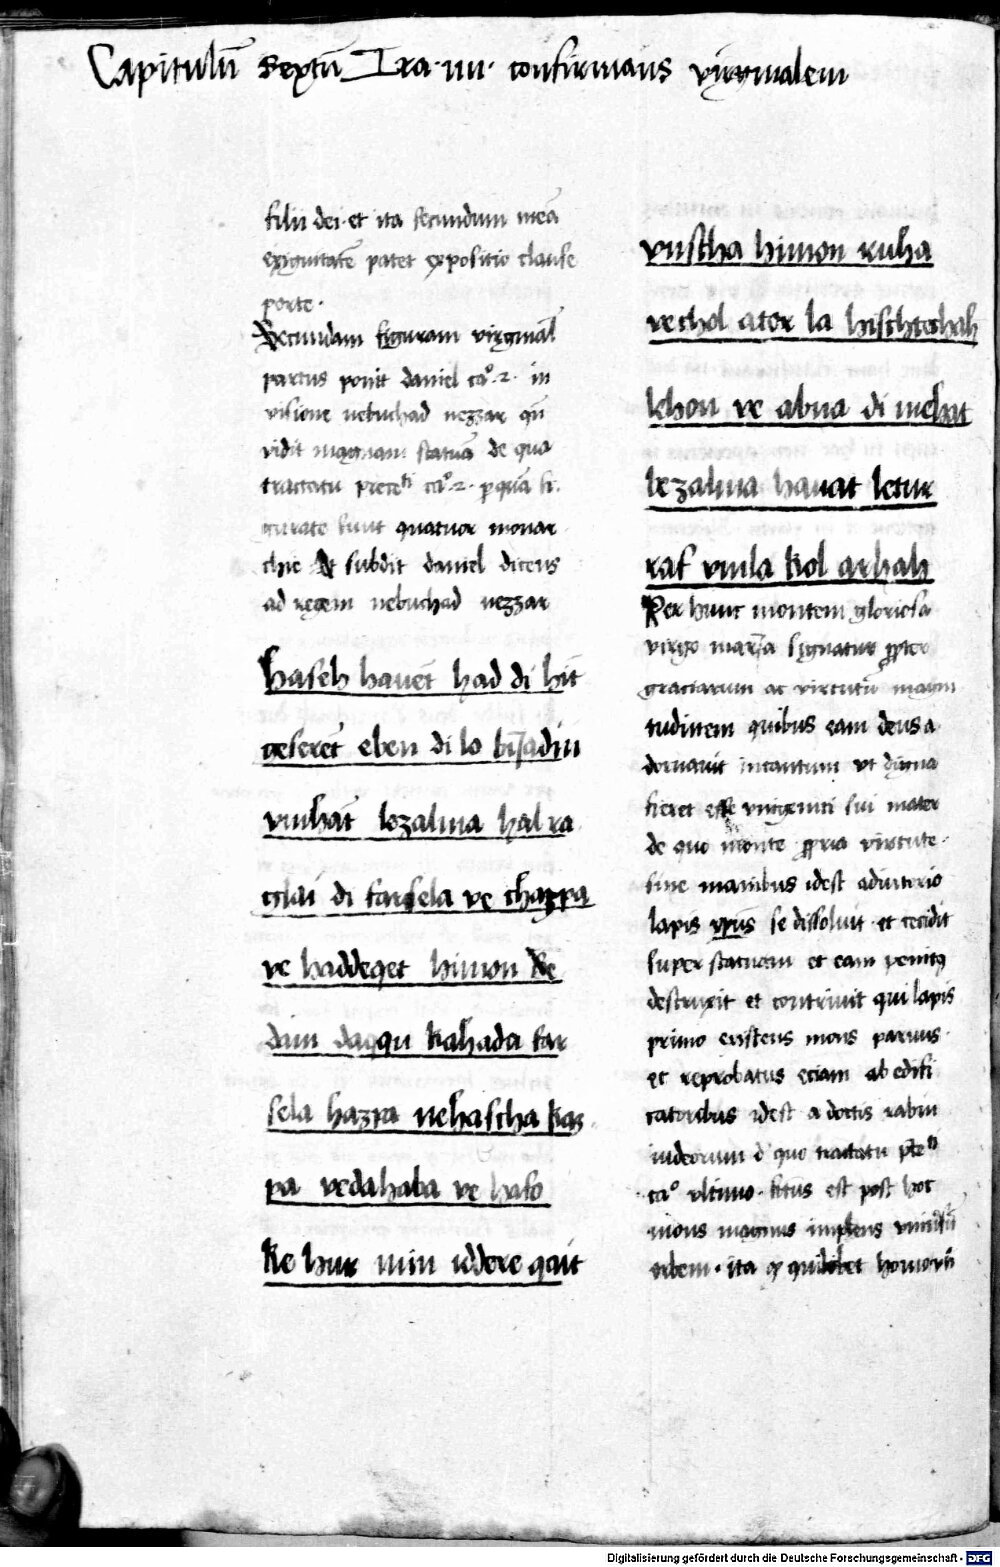 Capitulū Septū Lra · iiii · confirmans virginalem
filii dei · et ita secundum meā
exiguitatē patet expositio clause
porte ·
Secundam figuram virginal
partus ponit daniel caº · 2 · in
visione nebuchad nezzar qn̄
vidit magnam statuā de qua
tractatu precenti caº · 2 · per quā fi
gurate sunt quatuor monar
chie Et subdit daniel dicens
ad regem nebuchad nezzar
haseh hauet had di hit
geseret eben di lo bijadin
vmhat lezalma hal ra
glai di farsela ve chazpa
ve haddeqet himon Be
dain daqqu kahada far
sela hazpa nehascha kas
pa vedahaba ve hafo
ke hur min iddere qait
vnstha himon ruha
vechol ator la hischtechah
lhon ve abna di mehat
lezalma hauat letur
raf vmla kol arhah
Per hunc montem gloriosa
virgo maria signatur propter
graciarum ac virtutū magni
tudinem quibus eam deus a
dornauit incantum vt digna
fieret esse vnigeniti sui mater
de quo monte propria virtute
sine manibus idest adiutorio
lapis xpus se dissoluit et cecidit
super statuam et eam penitus
destruxit et contriuit qui lapis
primo existens mons paruus
et reprobatus eciam ab edifi
catoribus idest a doctis rabin
iudeorum de quo tractatu
caº vltimo · fctus est post hoc
mons magnus implens vniuersū
orbem · ita quod quilibet homo
Digitalisierung gefördert durch die Deutsche Forschungsgemeinschaft - DFG